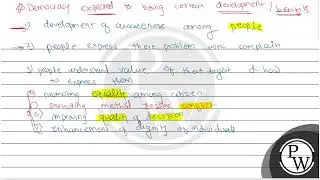 Democracy expected to bring certain development / benefits
1) development of awareness among people
2) people express their problem with complain
3) people understand value of their right & how
to express them
promoting equality among citizen
providing method resolve conflict
improving quality of decision
enhancement of dignity of individuals
PW